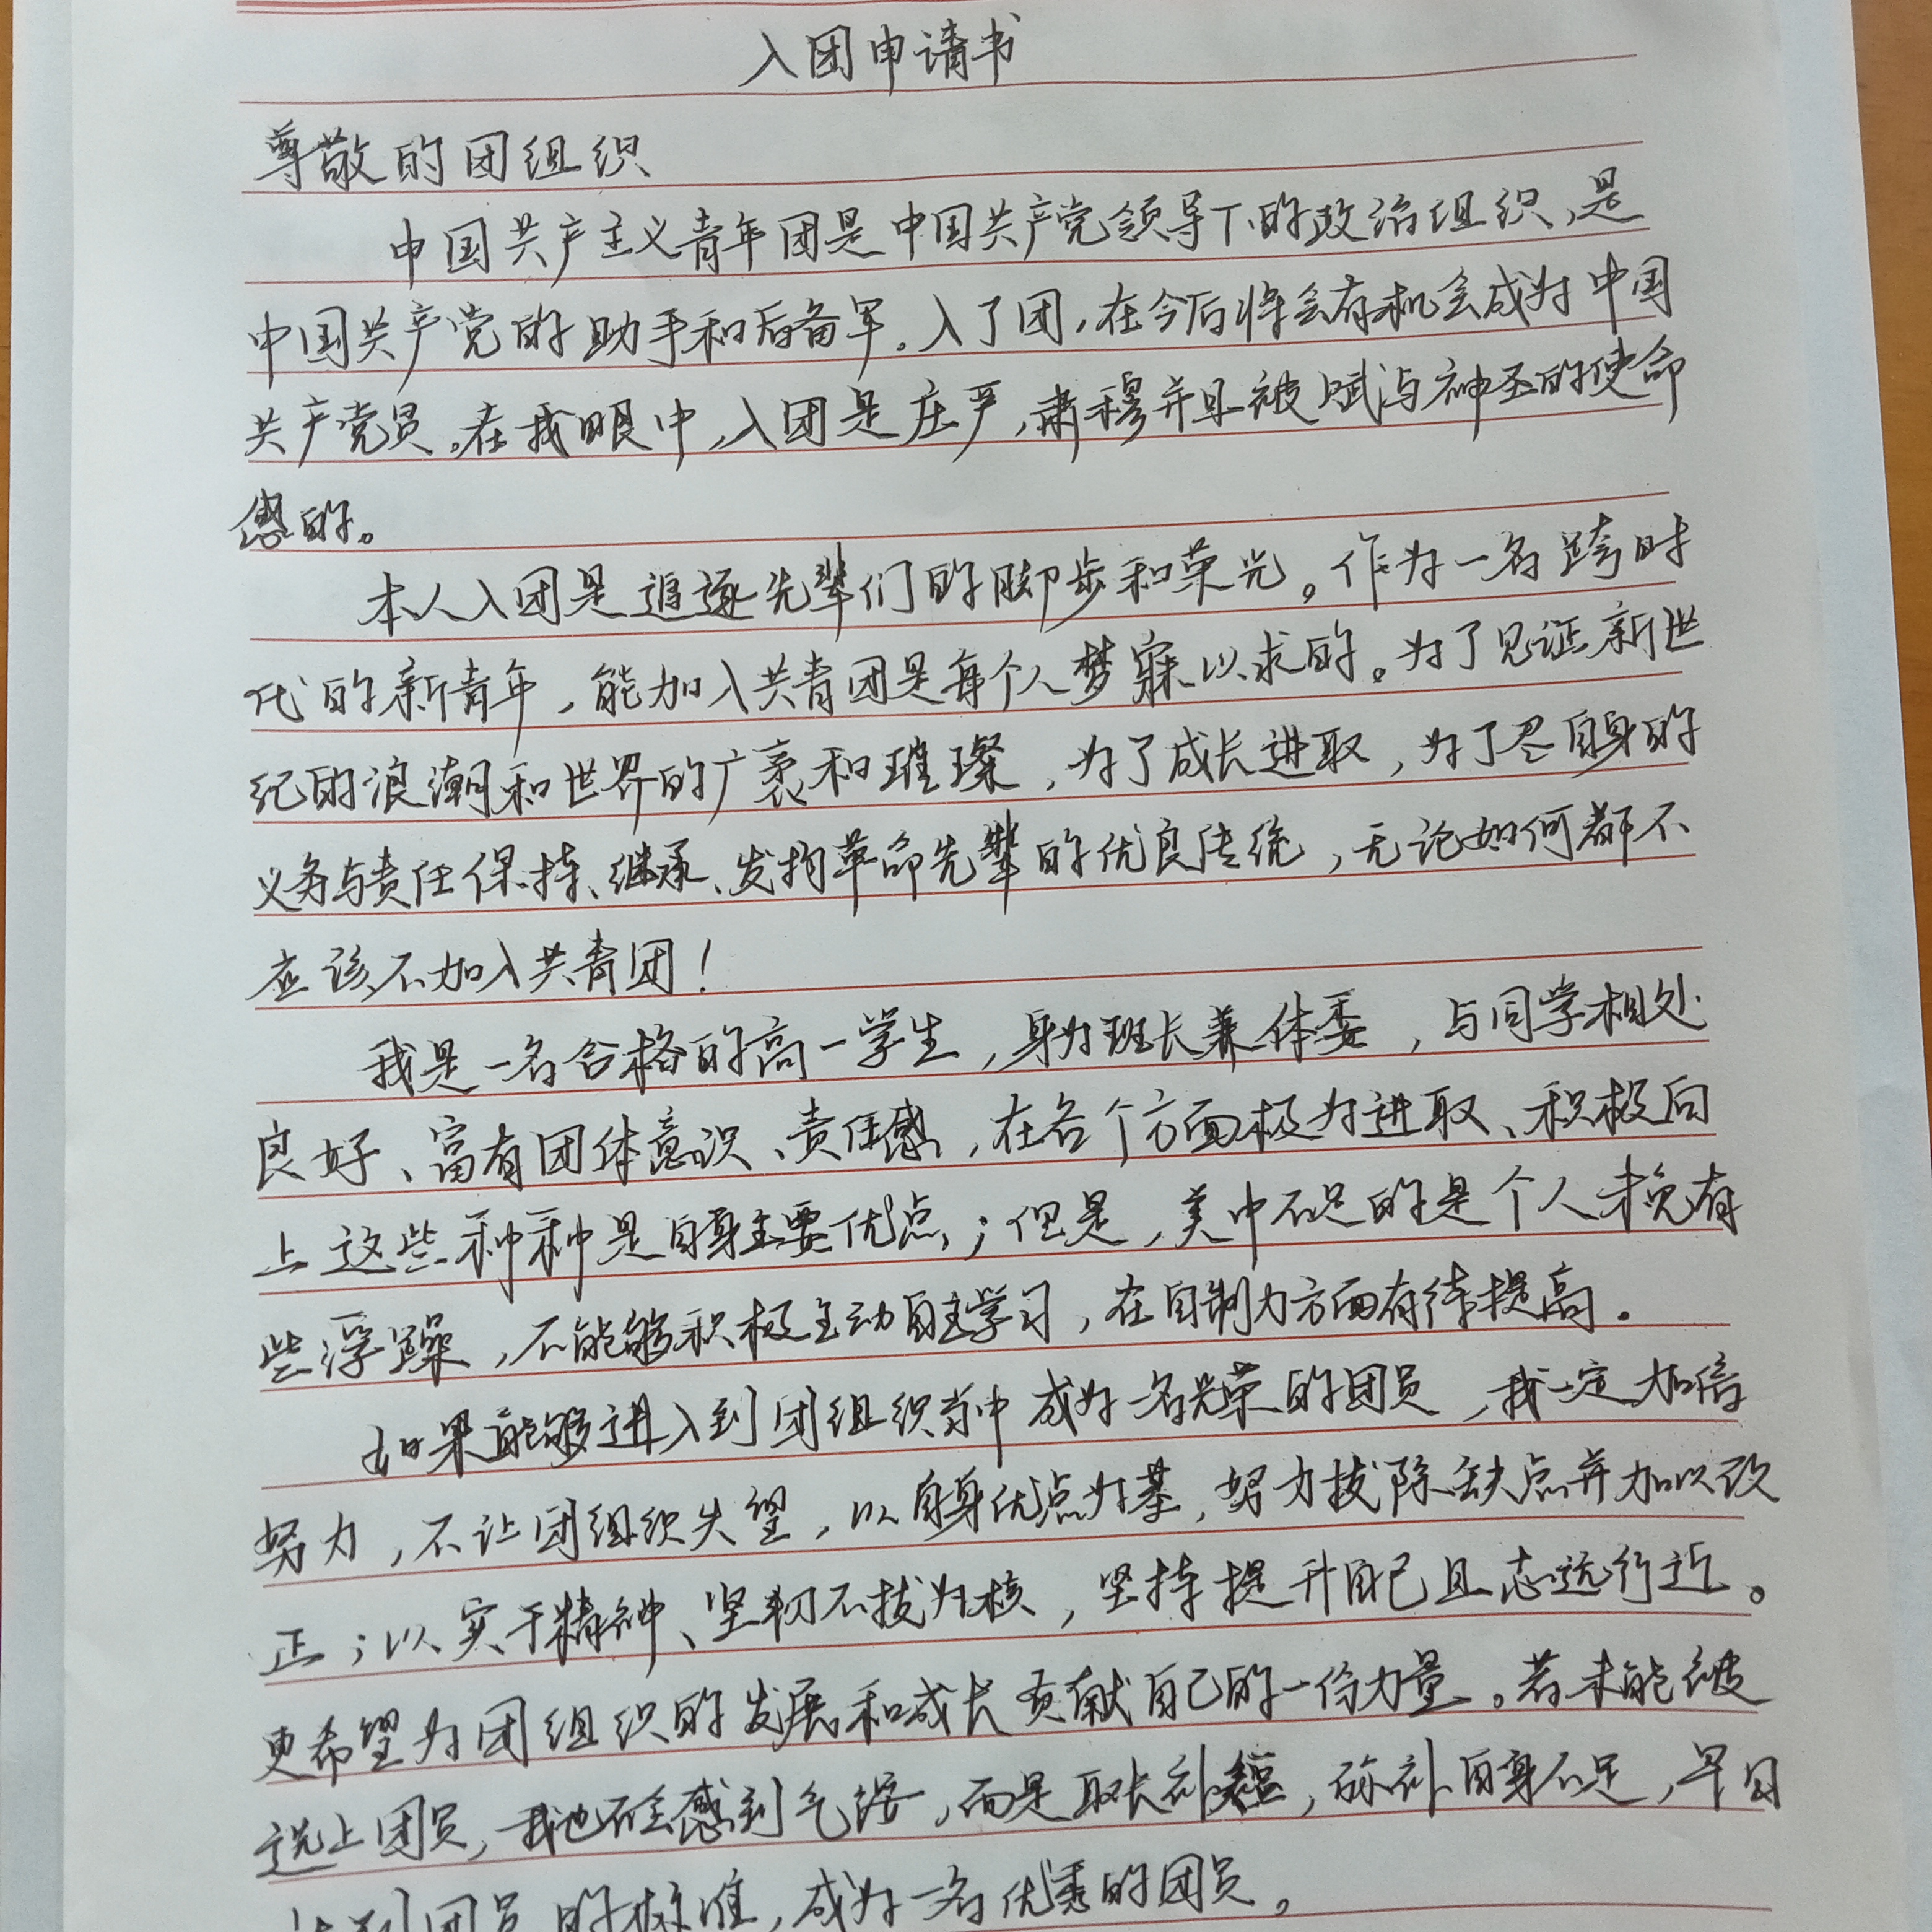 入团申请书
尊敬的团组织
中国共产主义青年团是中国共产党领导下的政治组织,是
中国共产党的助手和后备军。入了团,在今后将会有机会成为中国
共产党员。在我眼中,入团是庄严,肃穆并且被赋与神圣的使命
感的。
本人入团是追逐先辈们的脚步和荣光。作为一名跨时
代的新青年,能加入共青团是每个人梦寐以求的。为了见证新世
纪的浪潮和世界的广袤和璀璨,为了成长进取,为了尽自身的
义务与责任保持、继承、发扬革命先辈的优良传统,无论如何都不
应该不加入共青团!
我是一名合格的高一学生,身为班长兼体委,与同学相处
良好、富有团体意识、责任感,在各个方面极为进取、积极向
上这些种种是自身主要优点;但是,美中不足的是个人未免有
些浮躁,不能够积极主动自主学习,在自制力方面有待提高.
如果能够进入到团组织当中成为一名光荣的团员,我一定加倍
努力,不让团组织失望,以自身优点为基,努力拔除缺点并加以改
正;以实干精神、坚韧不拔为核,坚持提升自己且志远行近。
更希望为团组织的发展和成长贡献自己的一份力量。若未能被
选上团员,我也不会感到气馁,而是取长补短,弥补自身不足,早日
达到团员的标准,成为一名优秀的团员。